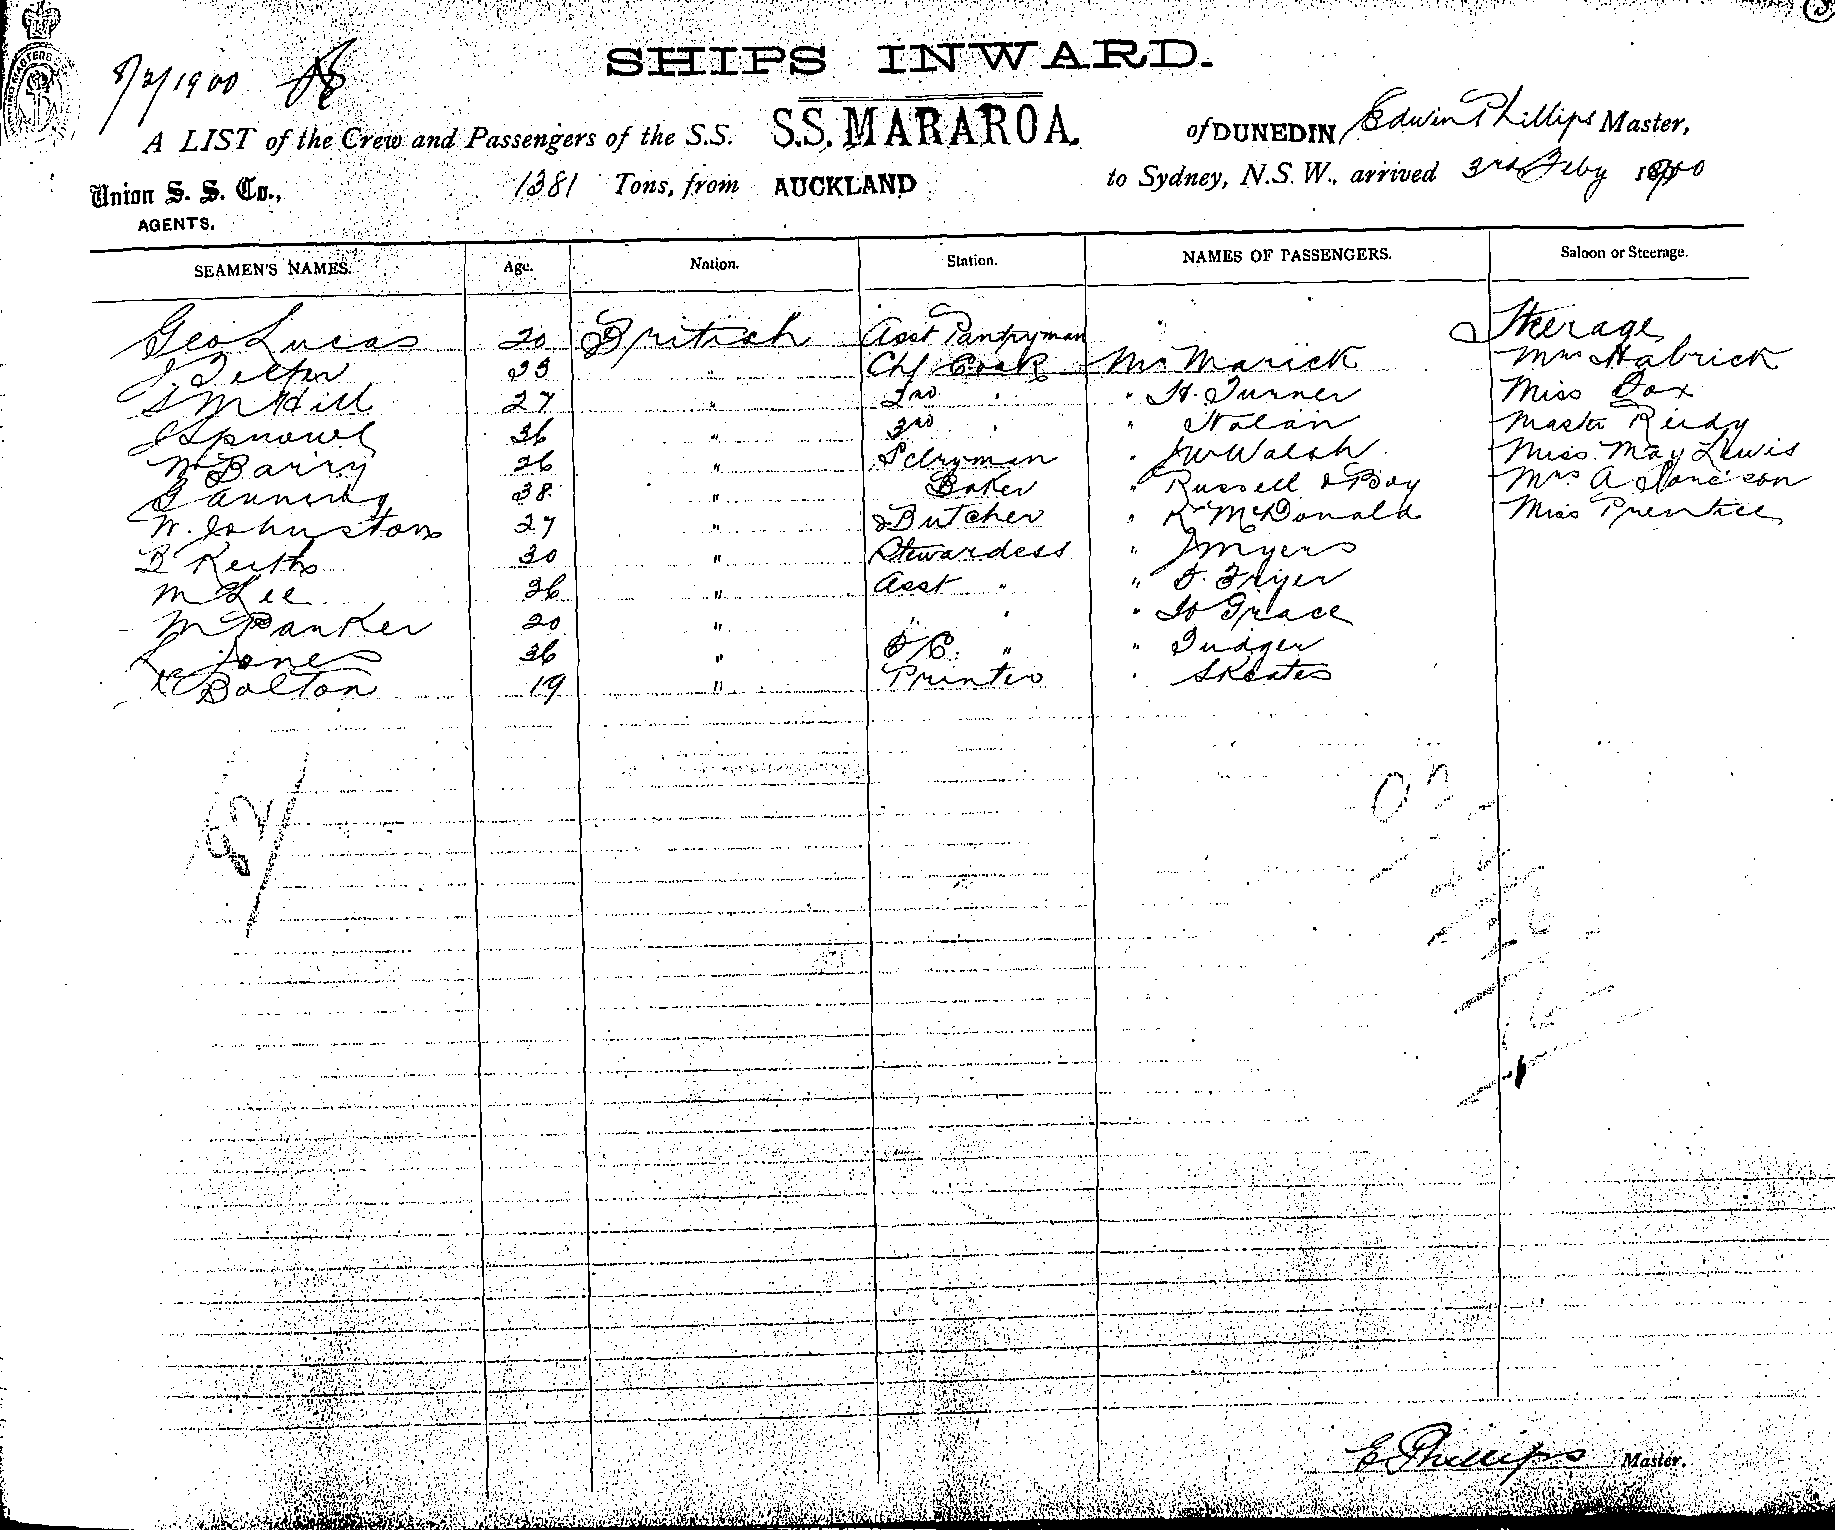 8/2/1900
SHIPS INWARD.
A LIST of the Crew and Passengers of the S.S. S.S. MARAROA. of DUNEDIN, Edwin Phillips Master,
Union S. S. Co., 1381 Tons, from AUCKLAND to Sydney, N.S.W., arrived 3rd Feby 1900
AGENTS.
SEAMEN'S NAMES. Age. Nation. Station. NAMES OF PASSENGERS. Saloon or Steerage.
Geo Lucas 20 British Asst Pantryman Steerage
J. 23 " Chf Cook Mr Marick Mrs Habrick
S McHill 27 " 2nd " " H. Turner Miss Cox
J 36 " 3rd " " Nolan Master Reidy
W Barry 26 " " J W Walsh Miss May Lewis
G Anning 38 " Baker " Russell & Boy Mrs A
W. Johnston 27 " Butcher " R McDonald Miss Prentice
B Keith 30 " Stewardess " J Myers
M Lee 26 " Asst " " F. Fryer
M Parker 20 " " " " Grace
Jones 36 " F/C. " " Judger
Bolton 19 " Printer " Skeates
82
E Phillips Master.